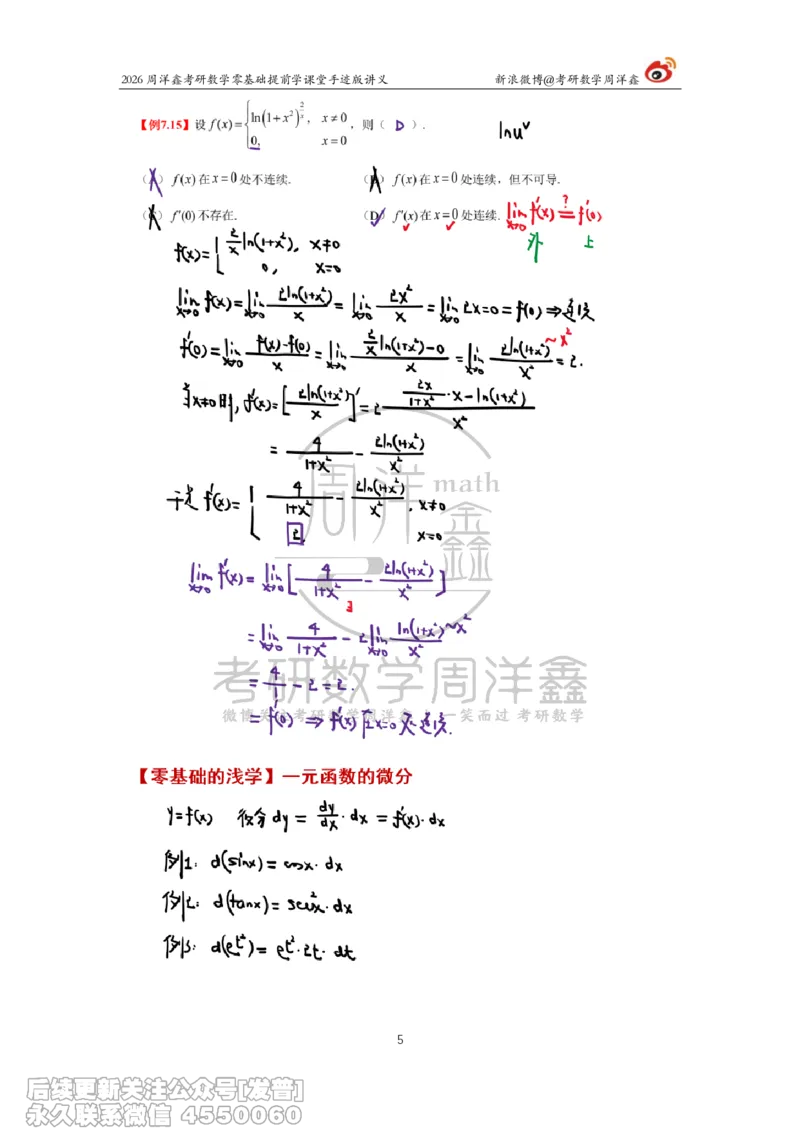 2026 周洋鑫考研数学零基础提前学课堂手迹版讲义 新浪微博@考研数学周洋鑫
【例7.15】设 f(x)={ln(1+x²)^(2/x), x≠0; 0, x=0, 则( D ).
ln u^v
(A) f(x)在x=0处不连续. (B) f(x)在x=0处连续，但不可导.
(C) f′(0)不存在. (D) f′(x)在x=0处连续. lim x→0 f′(x) =? f′(0)
外 上
f(x)={2/x ln(1+x²), x≠0; 0, x=0
lim x→0 f(x)=lim x→0 2ln(1+x²)/x = lim x→0 2x²/x = lim x→0 2x=0=f(0)⇒连续
f′(0)=lim x→0 (f(x)-f(0))/x = lim x→0 (2/x ln(1+x²)-0)/x = lim x→0 2ln(1+x²)/x² = 2. ~x²
当x≠0时, f′(x)=[2ln(1+x²)/x]′=2 (2x/(1+x²)·x-ln(1+x²))/x²
= 4/(1+x²) - 2ln(1+x²)/x²
于是 f′(x)={4/(1+x²) - 2ln(1+x²)/x², x≠0; 2, x=0
lim x→0 f′(x)=lim x→0 [4/(1+x²) - 2ln(1+x²)/x²]
∃
=lim x→0 4/(1+x²) - 2lim x→0 ln(1+x²)/x² ~x²
=4/1-2=2.
=f′(0) ⇒ f′(x)在x=0处连续.
周洋鑫 math
考研数学周洋鑫
一笑而过 考研数学
【零基础的浅学】一元函数的微分
y=f(x) 微分 dy = dy/dx · dx = f′(x)·dx
例1: d(sinx)=cosx·dx
例2: d(tanx)=sec²x·dx
例3: d(e^t²)=e^t²·2t·dt
5
后续更新关注公众号[发普]
永久联系微信 4550060